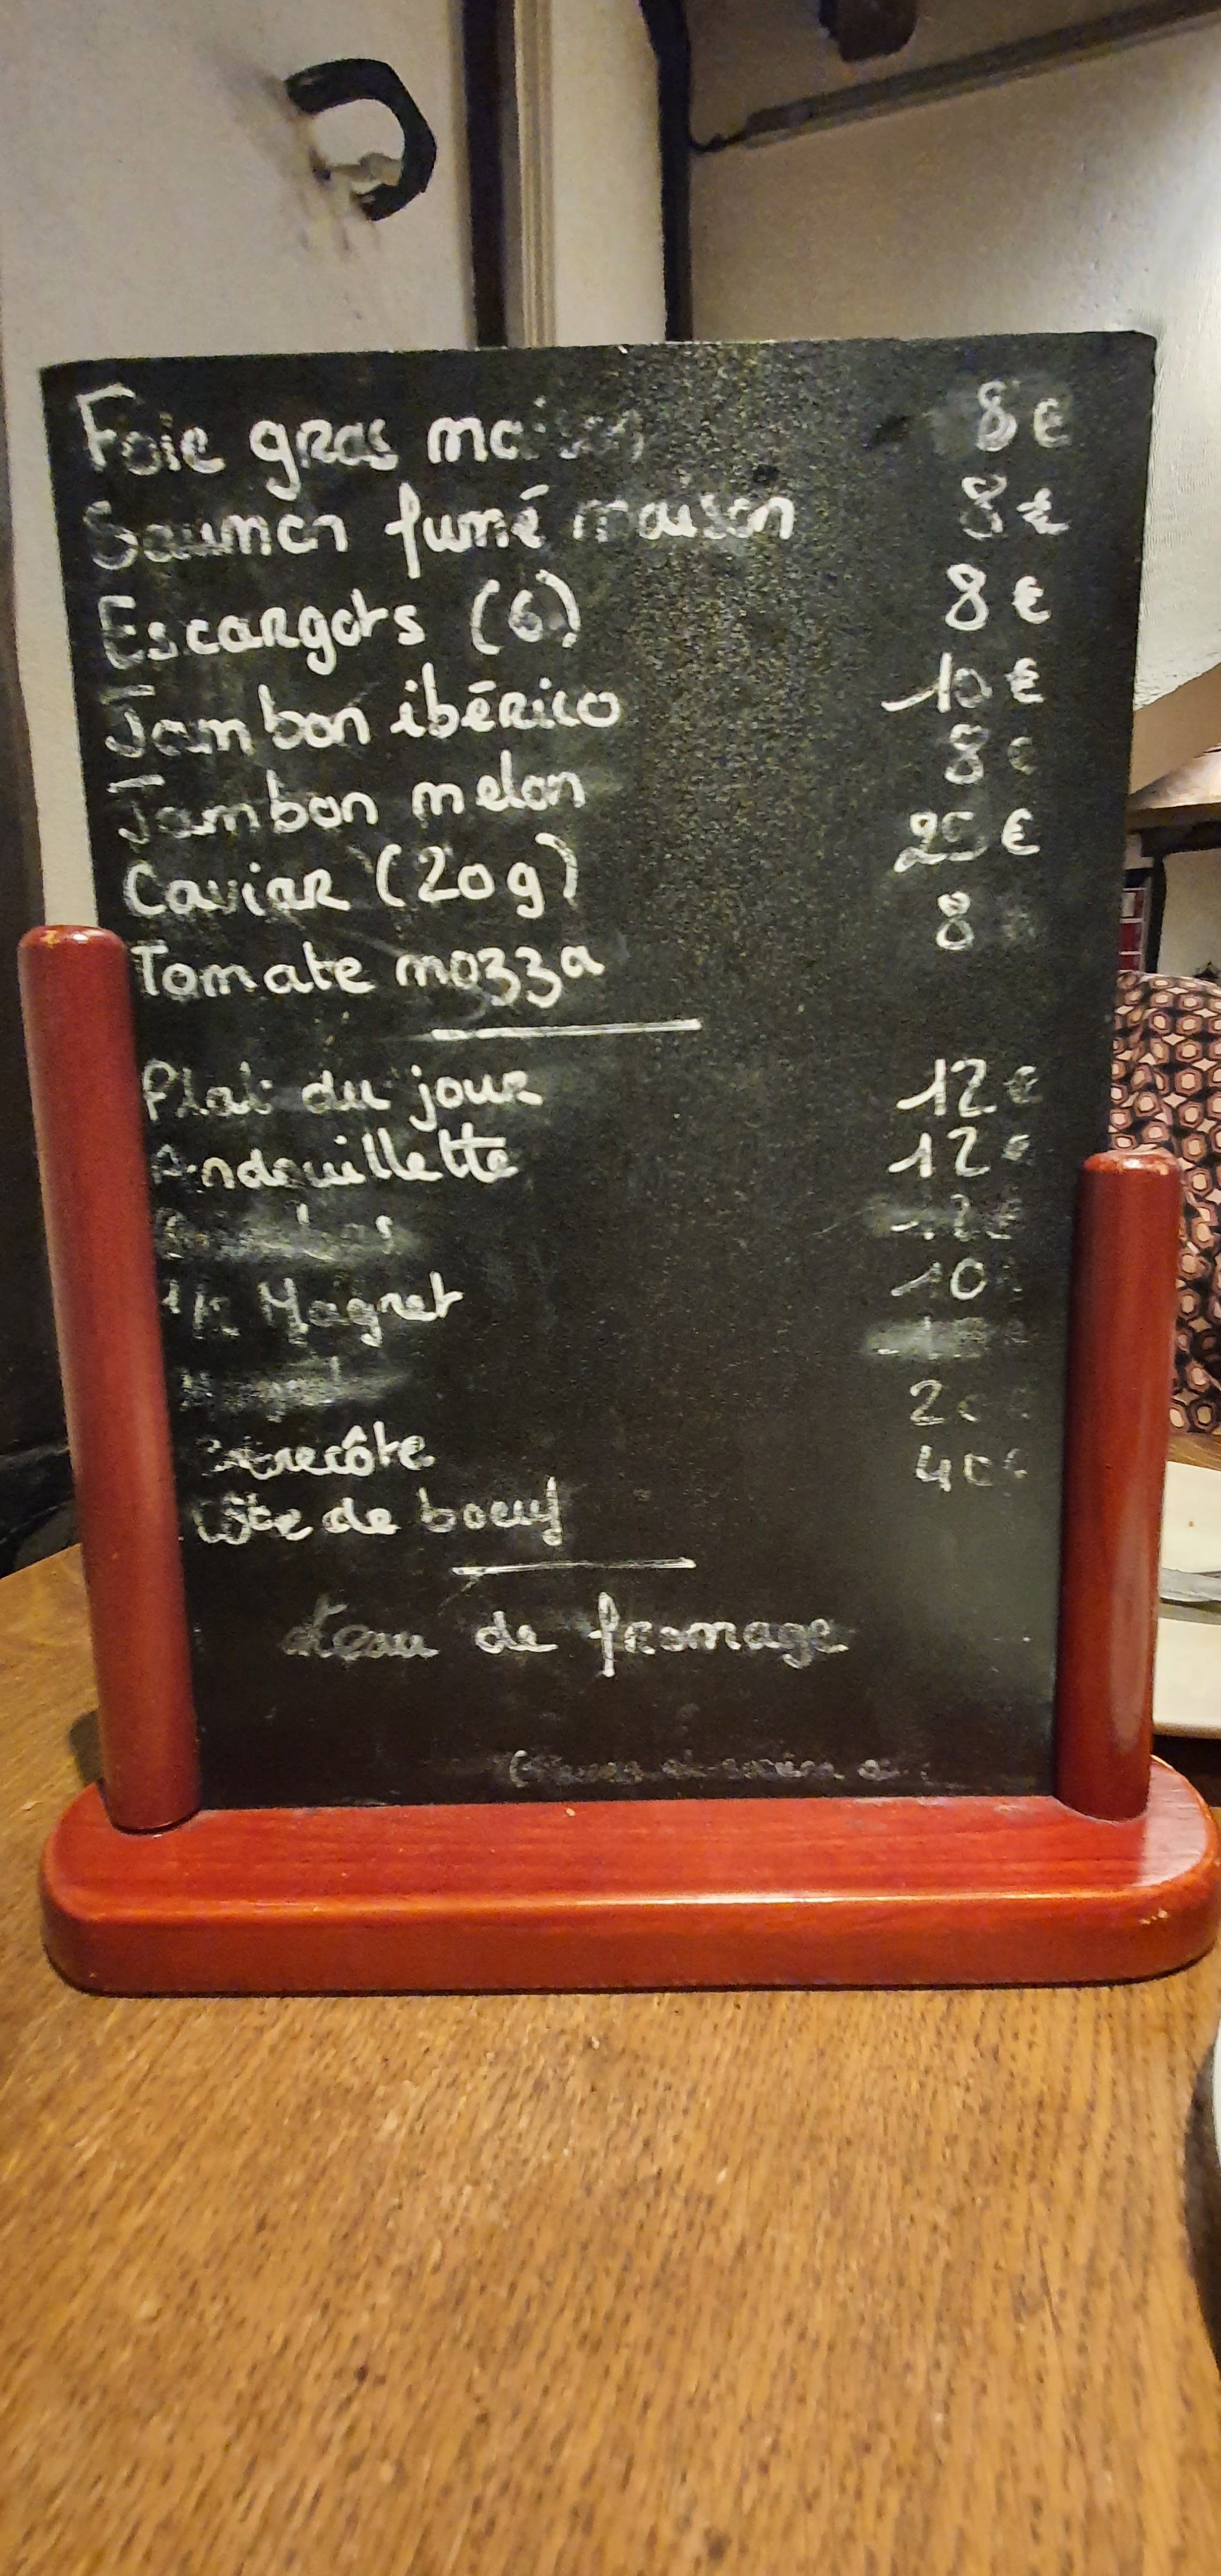 Foie gras maison 8€
Saumon fumé maison 8€
Escargots (6) 8€
Jambon ibérico 10€
Jambon melon 8€
Caviar (20g) 25€
Tomate mozza 8
Plat du jour 12€
Andouillette 12€
12€
1/2 Magret 10
Entrecôte 20
Côte de boeuf 40€
de fromage